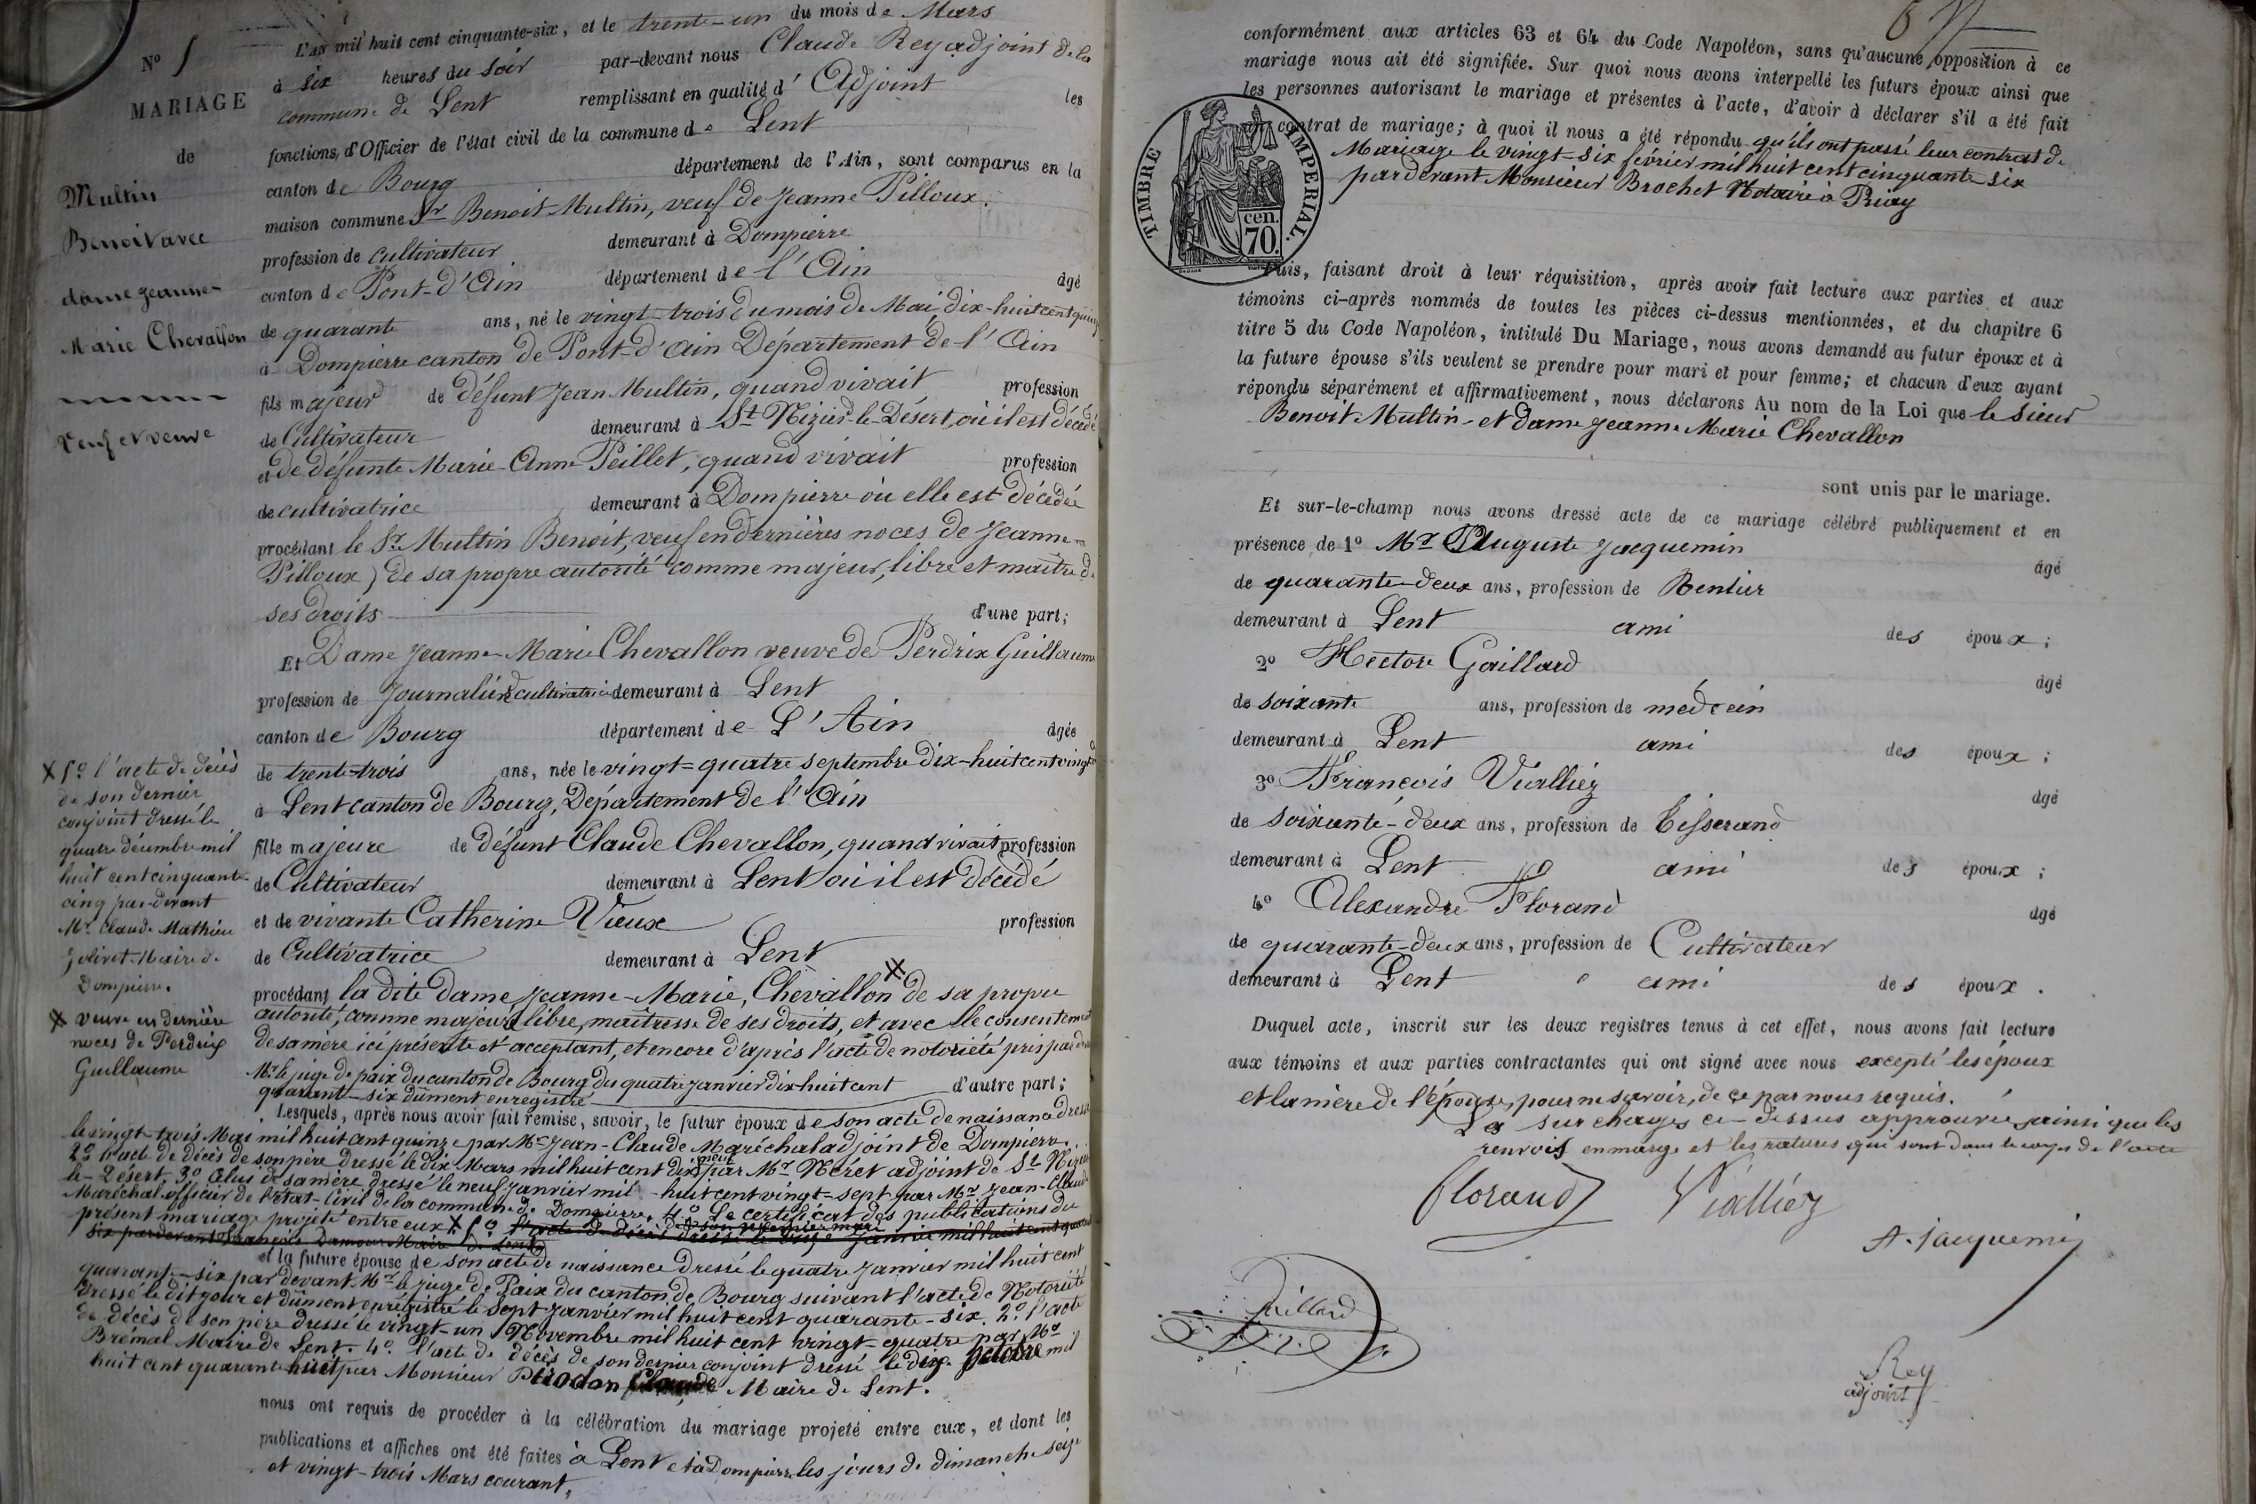 N° 5
MARIAGE
de
Multin
Benoit avec
dame jeanne-
Marie Chevallon
veuf et veuve
L'an mil huit cent cinquante-six, et le trente-un du mois de Mars
à six heures du soir par-devant nous Claude Rey adjoint de la
commune de Lent remplissant en qualité d'Adjoint les
fonctions d'Officier de l'état civil de la commune de Lent
canton de Bourg département de l'Ain, sont comparus en la
maison commune Sr Benoit Multin, veuf de Jeanne Pilloux.
profession de cultivateur demeurant à Dompierre
canton de Pont-d'Ain département de l'Ain âgé
de quarante ans, né le vingt-trois du mois de Mai dix-huit cent quinze
à Dompierre canton de Pont-d'Ain Département de l'Ain
fils majeur de défunt Jean Multin, quand vivait profession
de Cultivateur demeurant à St Nizier-le-Désert, où il est décédé
et de défunte Marie-Anne Peillet, quand vivait profession
de cultivatrice demeurant à Dompierre où elle est décédée
procédant le Sr Multin Benoit, veuf en dernières noces de Jeanne
Pilloux) de sa propre autorité comme majeur, libre et maître de
ses droits d'une part;
Et Dame Jeanne-Marie Chevallon veuve de Perdrix Guillaume
profession de cultivatrice demeurant à Lent
canton de Bourg département de L'Ain âgée
de trente-trois ans, née le vingt-quatre septembre dix-huit cent vingt
à Lent canton de Bourg, Département de l'Ain
fille majeure de défunt Claude Chevallon, quand vivait profession
de Cultivateur demeurant à Lent où il est décédé
et de vivante Catherine Vieux profession
de Cultivatrice demeurant à Lent
procédant la dite dame Jeanne-Marie, Chevallon X de sa propre
autorité, comme majeure libre, maîtresse de ses droits, et avec le consentement
de sa mère ici présente et acceptant, et encore d'après l'acte de notoriété pris par
Mr le juge de paix du canton de Bourg du quatre janvier dix huit cent
quarante-six dûment enregistré d'autre part;
X 5° l'acte de décès
de son dernier
conjoint dressé le
quatre décembre mil
huit cent cinquante-
cinq par-devant
Mr Claude Mathieu
Jolivet Maire de
Dompierre.
X veuve en dernière
noces de Perdrix
Guillaume
Lesquels, après nous avoir fait remise, savoir, le futur époux de son acte de naissance dressé
le vingt-trois Mai mil huit cent quinze par Mr Jean-Claude Maréchal adjoint de Dompierre.
2° l'acte de décès de son père dressé le dix Mars mil huit cent dix neuf par Mr Néret adjoint de St Nizier
le-Désert, 3° Celui de sa mère dressé le neuf janvier mil-huit cent vingt-sept par Mr Jean-Claude
Maréchal officier de l'état-civil de la commune de Dompierre, 4° Le certificat des publications du
présent mariage projeté entre eux X 5° l'acte de décès de son dernier mari dressé le janvier mil huit cent quarante
six pardevant François Maire de Lent
et la future épouse de son acte de naissance dressé le quatre janvier mil huit cent
quarante-six par devant Mr le juge de Paix du canton de Bourg suivant l'acte de Notoriété
dressé le dit jour et dûment enregistré le sept janvier mil huit cent quarante-six. 2° l'acte
de décès de son père dressé le vingt-un Novembre mil huit cent vingt-quatre par Mr
Brémal Maire de Lent. 4° l'acte de décès de son dernier conjoint dressé le dix Octobre mil
huit cent quarante huit par Monsieur Maire de Lent.
nous ont requis de procéder à la célébration du mariage projeté entre eux, et dont les
publications et affiches ont été faites à Lent et à Dompierre les jours de dimanche seize
et vingt-trois Mars courant,
conformément aux articles 63 et 64 du Code Napoléon, sans qu'aucune opposition à ce
mariage nous ait été signifiée. Sur quoi nous avons interpellé les futurs époux ainsi que
les personnes autorisant le mariage et présentes à l'acte, d'avoir à déclarer s'il a été fait
contrat de mariage; à quoi il nous a été répondu qu'ils ont passé leur contrat de
Mariage le vingt-six février mil huit cent cinquante six
par devant Monsieur Brochet Notaire à Priay
TIMBRE IMPERIAL.
cen.
70.
Puis, faisant droit à leur réquisition, après avoir fait lecture aux parties et aux
témoins ci-après nommés de toutes les pièces ci-dessus mentionnées, et du chapitre 6
titre 5 du Code Napoléon, intitulé Du Mariage, nous avons demandé au futur époux et à
la future épouse s'ils veulent se prendre pour mari et pour femme; et chacun d'eux ayant
répondu séparément et affirmativement, nous déclarons Au nom de la Loi que le sieur
Benoit Multin et dame Jeanne Marie Chevallon
sont unis par le mariage.
Et sur-le-champ nous avons dressé acte de ce mariage célébré publiquement et en
présence de 1° Mr Auguste Jacquemin âgé
de quarante-deux ans, profession de Rentier
demeurant à Lent ami des époux;
2° Hector Gaillard âgé
de soixante ans, profession de médecin
demeurant à Lent ami des époux;
3° François Vialliéz âgé
de soixante-deux ans, profession de Tisserand
demeurant à Lent ami des époux;
4° Alexandre Florand âgé
de quarante-deux ans, profession de Cultivateur
demeurant à Lent ami des époux.
Duquel acte, inscrit sur les deux registres tenus à cet effet, nous avons fait lecture
aux témoins et aux parties contractantes qui ont signé avec nous excepté les époux
et la mère de l'épouse, pour ne savoir, de ce par nous requis.
La surcharge ci-dessus approuvée ainsi que les
renvois en marge et les ratures qui sont dans le corps de l'acte
florand Vialliéz
A. jacquemin
Gaillard
Rey
adjoint